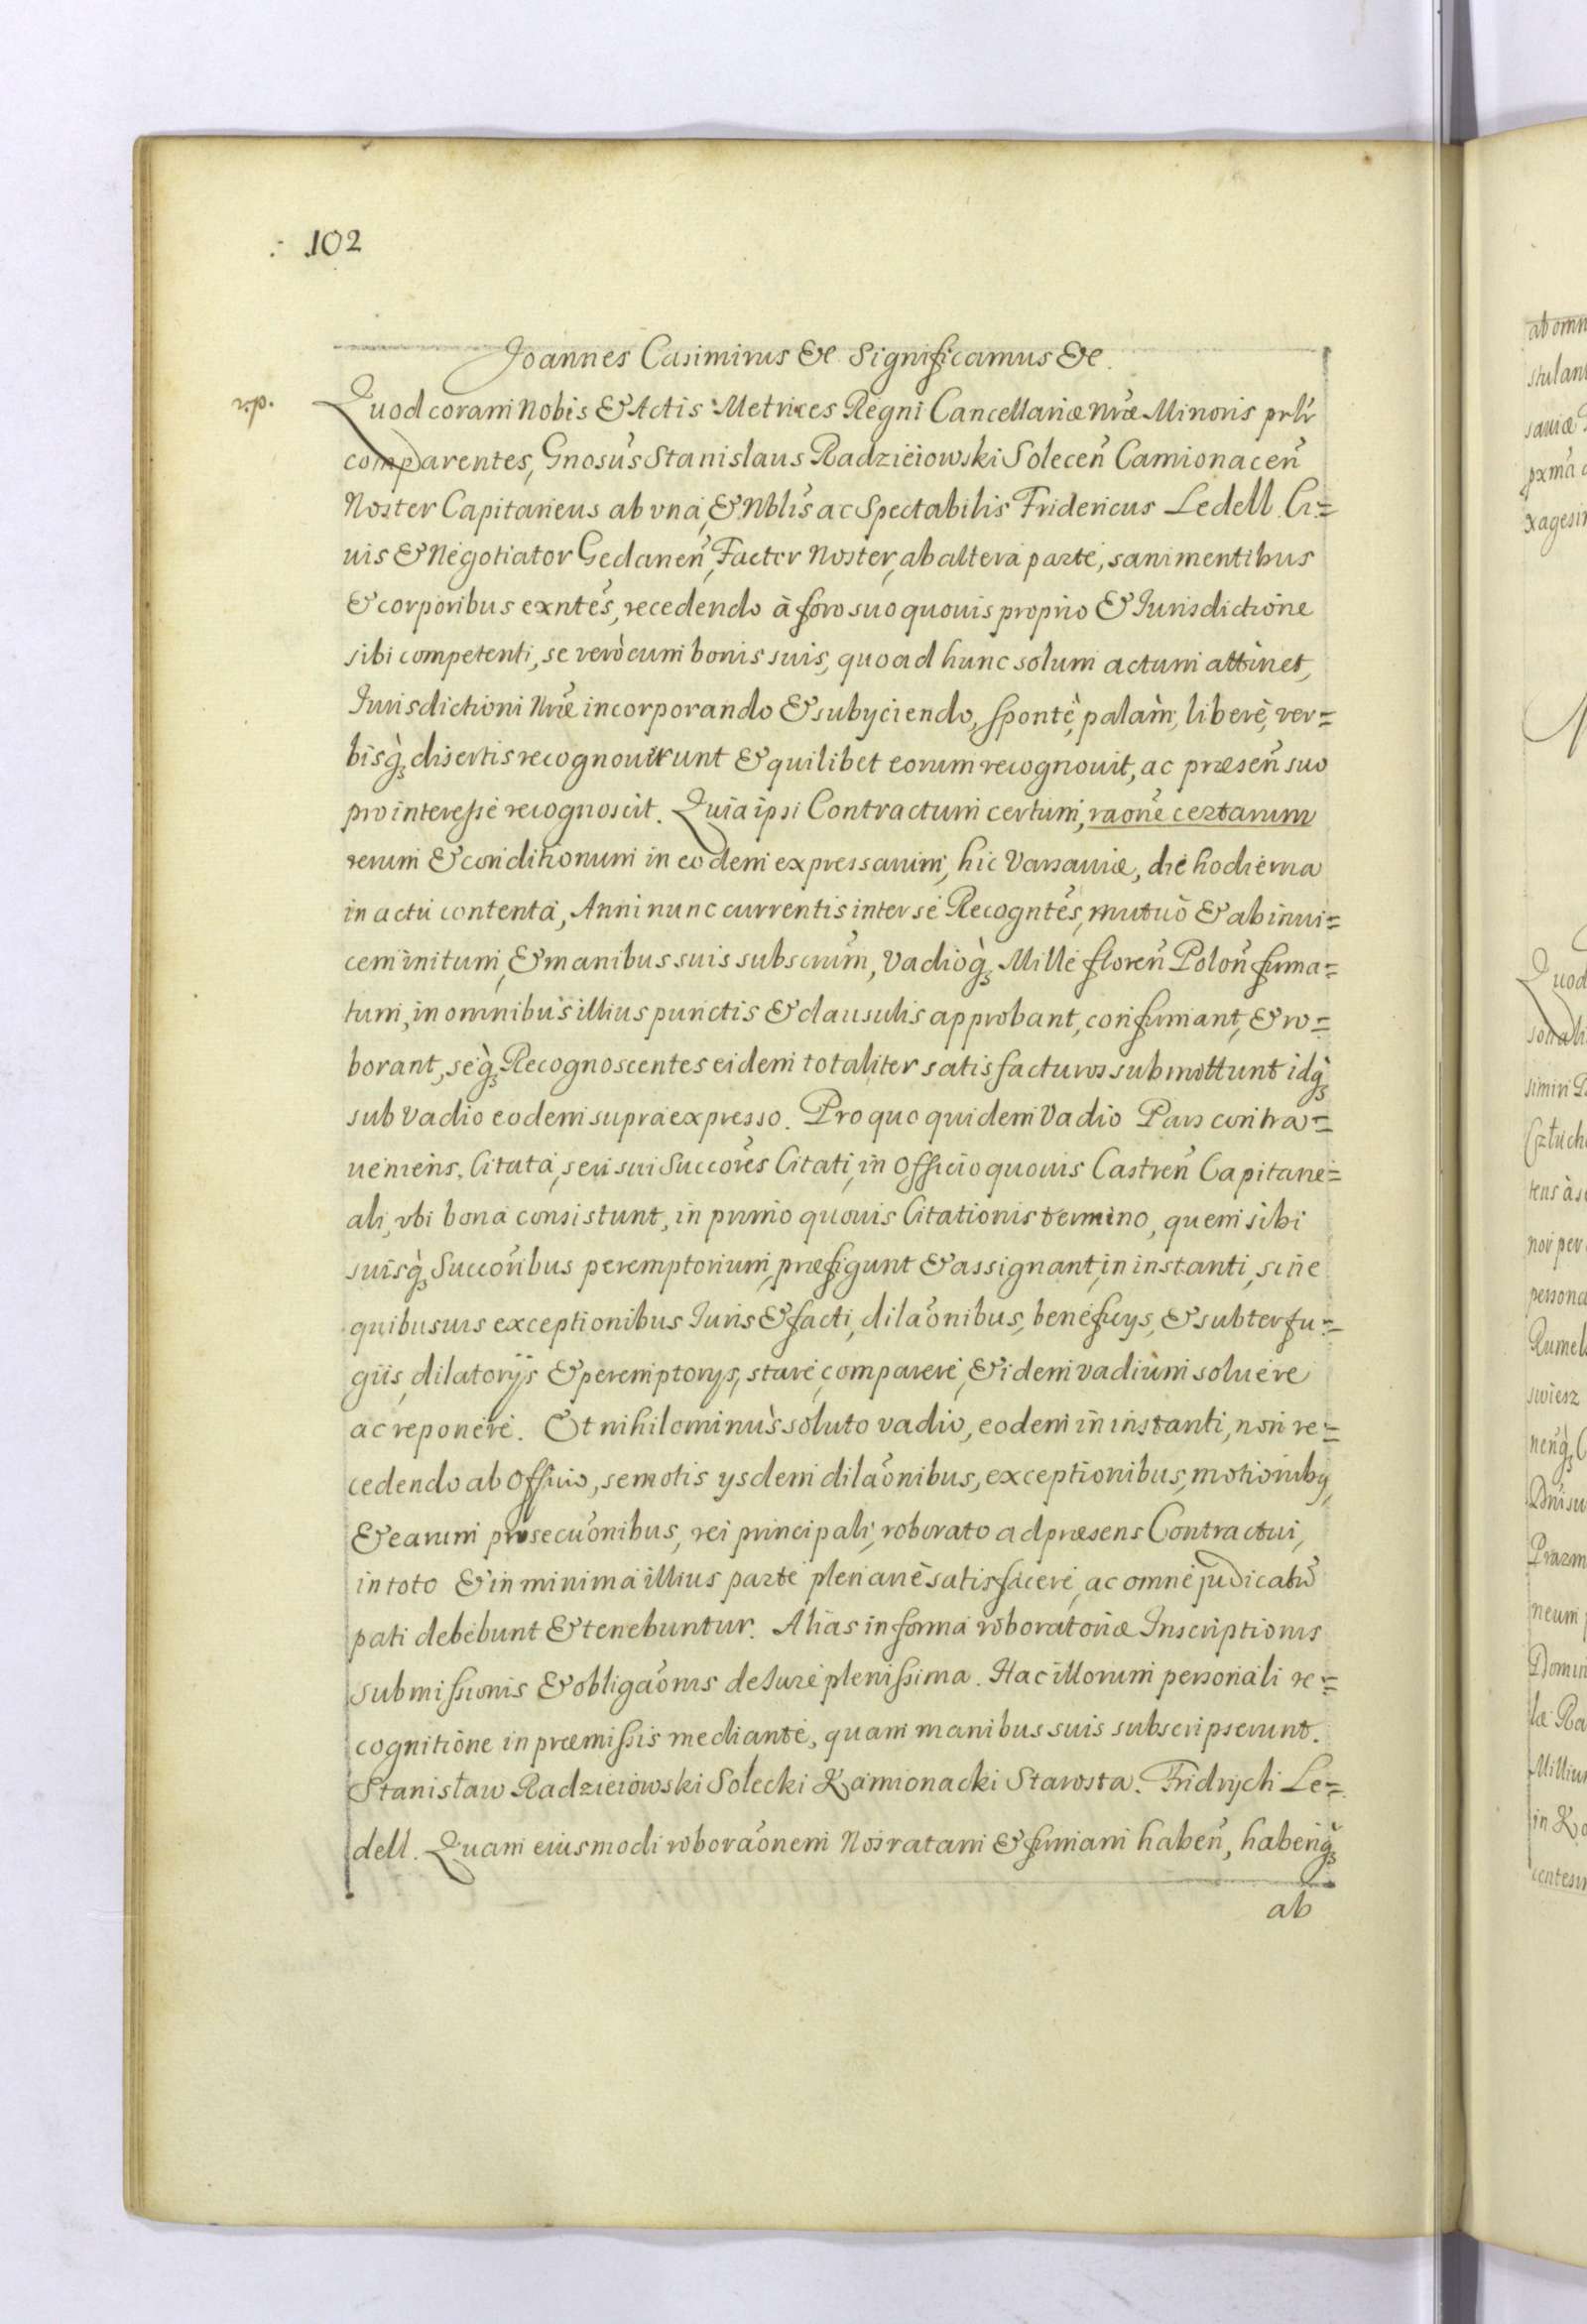 102
Joannes Casimirus &c Significamus &c.
r.p.
Quod coram Nobis & Actis Metrices Regni Cancellariæ Nr̃æ Minoris pr̃ltr
comparentes, Gnosũs Stanislaus Radzieiowski Soleceñ Camionaceñ
Noster Capitaneus ab vna, & Nblĩs ac Spectabilis Fridericus Ledell Ci=
uis & Negotiator Gedaneñ, Factor Noster, ab altera parte, sani mentibus
& corporibus exñtes, recedendo à foro suo quouis proprio & Iurisdictione
sibi competenti, se verò cum bonis suis, quoad hunc solum actum attinet,
Iurisdictioni Nr̃æ incorporando & subyciendo, spontè, palàm, liberè, ver=
bisq̀ disertis recognouerunt & quilibet eorum recognouit, ac præseñ suo
pro interesse recognoscit. Quia ipsi Contractum certum, raõne certarum
rerum & conditionum in eodem expressarum, hic Varsauiæ, die hodierna
in actu contenta, Anni nunc currentis inter se Recogñtes, mutuò & ab inui=
cem initum, & manibus suis subscrum̃, Vadioq̀ Mille floreñ Poloñ firma=
tum, in omnibus illius punctis & clausulis approbant, confirmant, & ro=
borant, seq̀ Recognoscentes eidem totaliter satisfacturos submittunt idq̀
sub Vadio eodem supra expresso. Pro quo quidem Vadio Pars contra=
ueniens. Citata, seu sui Succoẽs Citati, in Officio quouis Castreñ Capitane=
ali, vbi bona consistunt, in primo quouis Citationis termino, quem sibi
suisq̀ Succoĩbus peremptorium, præfigunt & assignant, in instanti, sine
quibusuis exceptionibus Iuris & facti, dilaõnibus, beneficys, & subterfu=
giis, dilatorÿs & peremptorys, stare, comparere, & idem vadium soluere
ac reponere. Et nihilominùs soluto vadio, eodem in instanti, non re=
cedendo ab Officio, semotis ysdem dilaõnibus, exceptionibus, motionibȝ,
& earum prosecuõnibus, rei principali, roborato ad præsens Contractui,
in toto & in minima illius parte plenariè satisfacere, ac omne judicatũ
pati debebunt & tenebuntur. Alias in forma roboratoriæ Inscriptionis
submissionis & obligaõnis de Iure plenissima. Hac illorum personali re=
cognitione in præmissis mediante, quam manibus suis subscripserunt.
Stanisław Radzieiowski Solecki Kamionacki Starosta. Fridrych Le=
dell. Quam eiusmodi roboraõnem Nos ratam & firmam habeñ, habeñq̀
ab